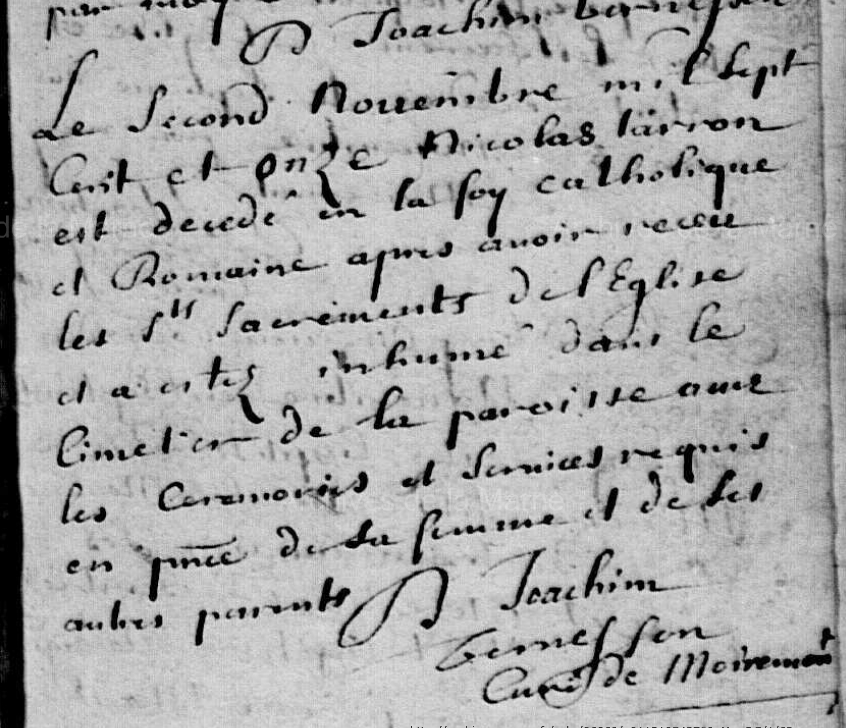 Joachim
Le second Nouembre mil sept
Cent et onze Nicolas tarron
est decedé en la foy catholique
et Romaine apres auoir receu
les sts sacrements de l'Eglise
et a estez inhumé dans le
Cimetier de la paroisse auec
les Ceremonies et seruices requis
en pnce de sa femme et de ses
autres parents J Joachim
Gernesson
Curé de Moiremont